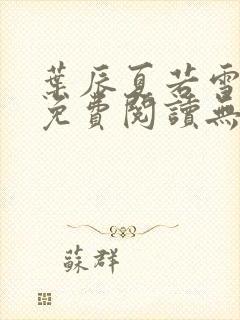 葉辰夏若雪
免費閱讀無
蘇群